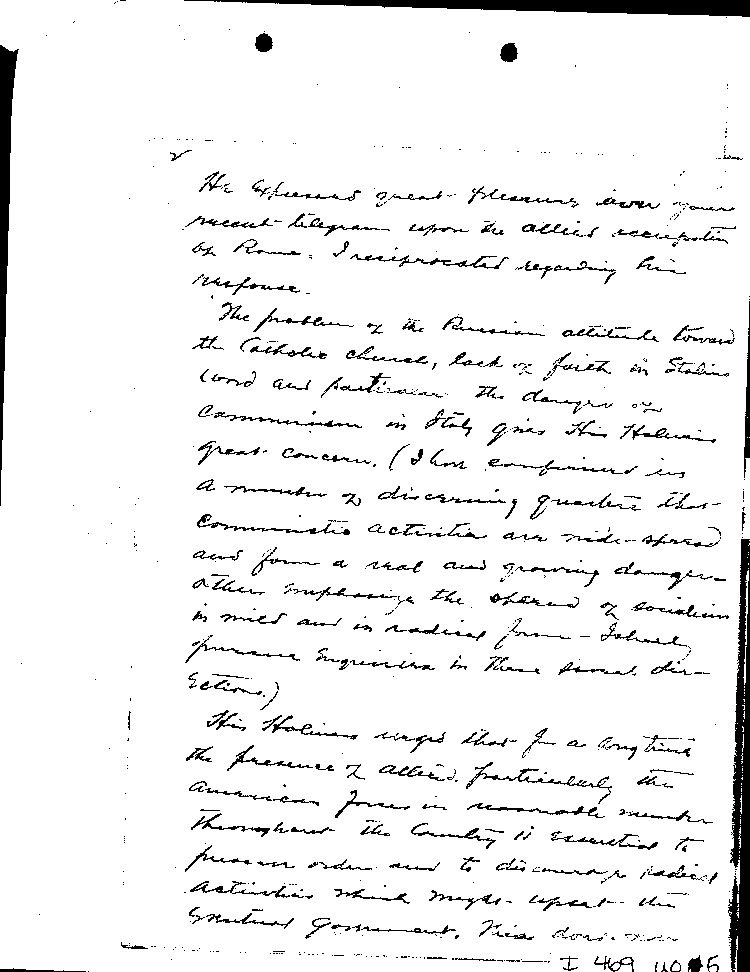 2
He expressed great pleasure over your
recent telegram upon the allied occupation
of Rome. I reciprocated regarding his
response.
The problem of the Russian attitude toward
the Catholic church, lack of faith in Stalins
word and particular the danger of
Communism in Italy gives His Holiness
great concern. (I have confirmed in
a number of discerning quarters that
communistic activities are wide-spread
and form a real and growing danger-
others emphasize the spread of socialism
in mild and in radical form - I shall
pursue inquiries in these several dir-
ections.)
His Holiness urged that for a long time
the presence of allied, particularly the
American forces in reasonable number
throughout the Country is essential to
preserve order and to discourage radical
activities which might upset the
eventual Government.
I 409